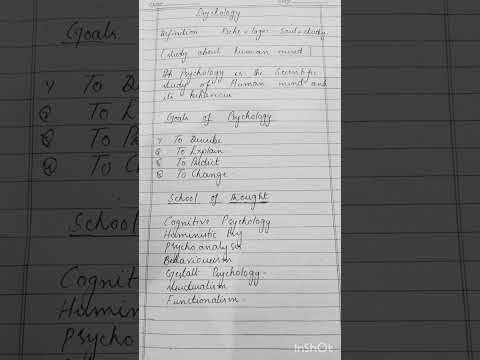 Psychology
Definition Psche + logos Soul + study
(study about human mind)
Psychology is the Scientific
study of Human mind and
its behaviour
Goals of Psychology
1) To Describe
② To Explain
③ To Predict
④ To Change
School of thought
Cognitive Psychology
Humnistic Psy
Psychoanalysis
Behaviourism
Gestalt Psychology
structuralism
Functionalism
InShOt